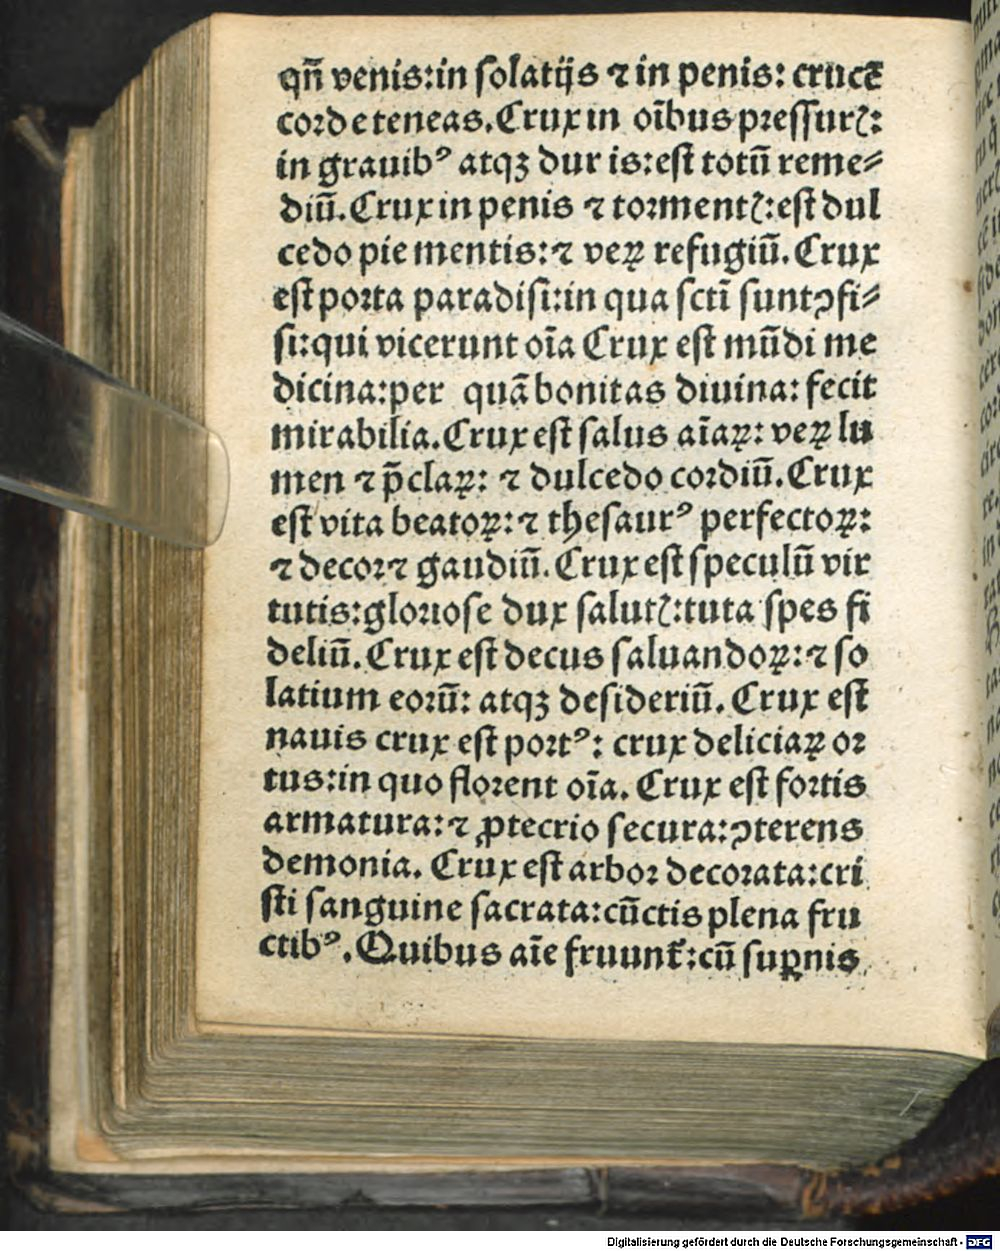 qñ venis:in ſolatijs ⁊ in penis: crucē
corde teneas.Crux in oībus preſſurꝭ:
in grauibꝰ atqꝫ duris:eſt totū reme⸗
diū.Crux in penis ⁊ tormentꝭ:eſt dul
cedo pie mentis:⁊ veꝝ refugiū.Crux
eſt porta paradiſi:in qua ſctī ſunt ꝯfi⸗
ſi:qui vicerunt oīa Crux eſt mūdi me
dicina:per quā bonitas diuina:fecit
mirabilia.Crux eſt ſalus aīaꝝ: veꝝ lu
men ⁊ p̄claꝝ: ⁊ dulcedo cordiū.Crux
eſt vita beatoꝝ:⁊ theſaurꝰ perfectoꝝ:
⁊ decor ⁊ gaudiū.Crux eſt ſpeculū vir
tutis:glorioſe dux ſalutꝭ:tuta ſpes fi
deliū.Crux eſt decus ſaluandoꝝ:⁊ ſo
latium eorū: atqꝫ deſideriū.Crux eſt
nauis crux eſt portꝰ: crux deliciaꝝ or
tus:in quo florent oīa. Crux eſt fortis
armatura:⁊ ꝓtecrio ſecura:ꝯterens
demonia. Crux eſt arbor decorata:cri
ſti ſanguine ſacrata:cūctis plena fru
ctibꝰ.Quibus aīe fruunt᷑:cū ſuꝑnis
Digitalisierung gefördert durch die Deutsche Forschungsgemeinschaft - DFG